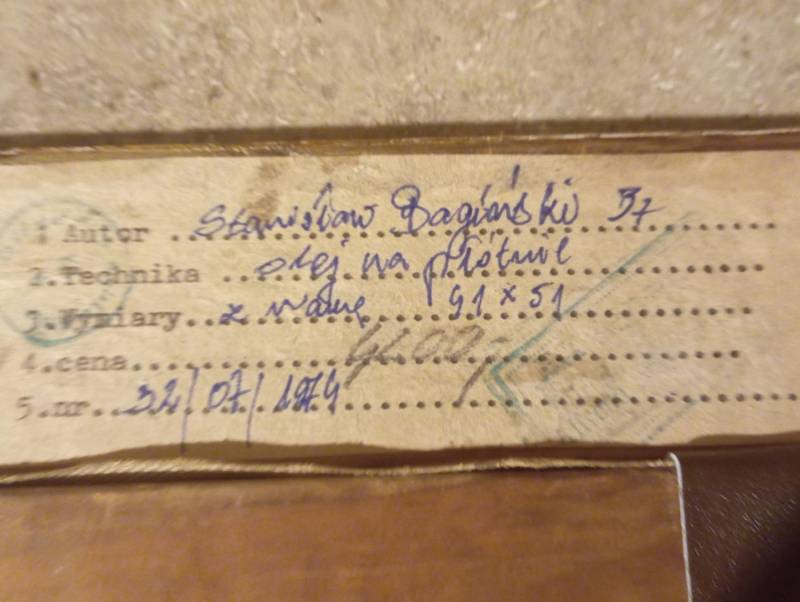 1 Autor ... Stanisław Bagiński 37
2. Technika ... olej na płótnie
3. Wymiary ... z ramą 91 x 51
4. cena...
5. nr... 32/07/1974